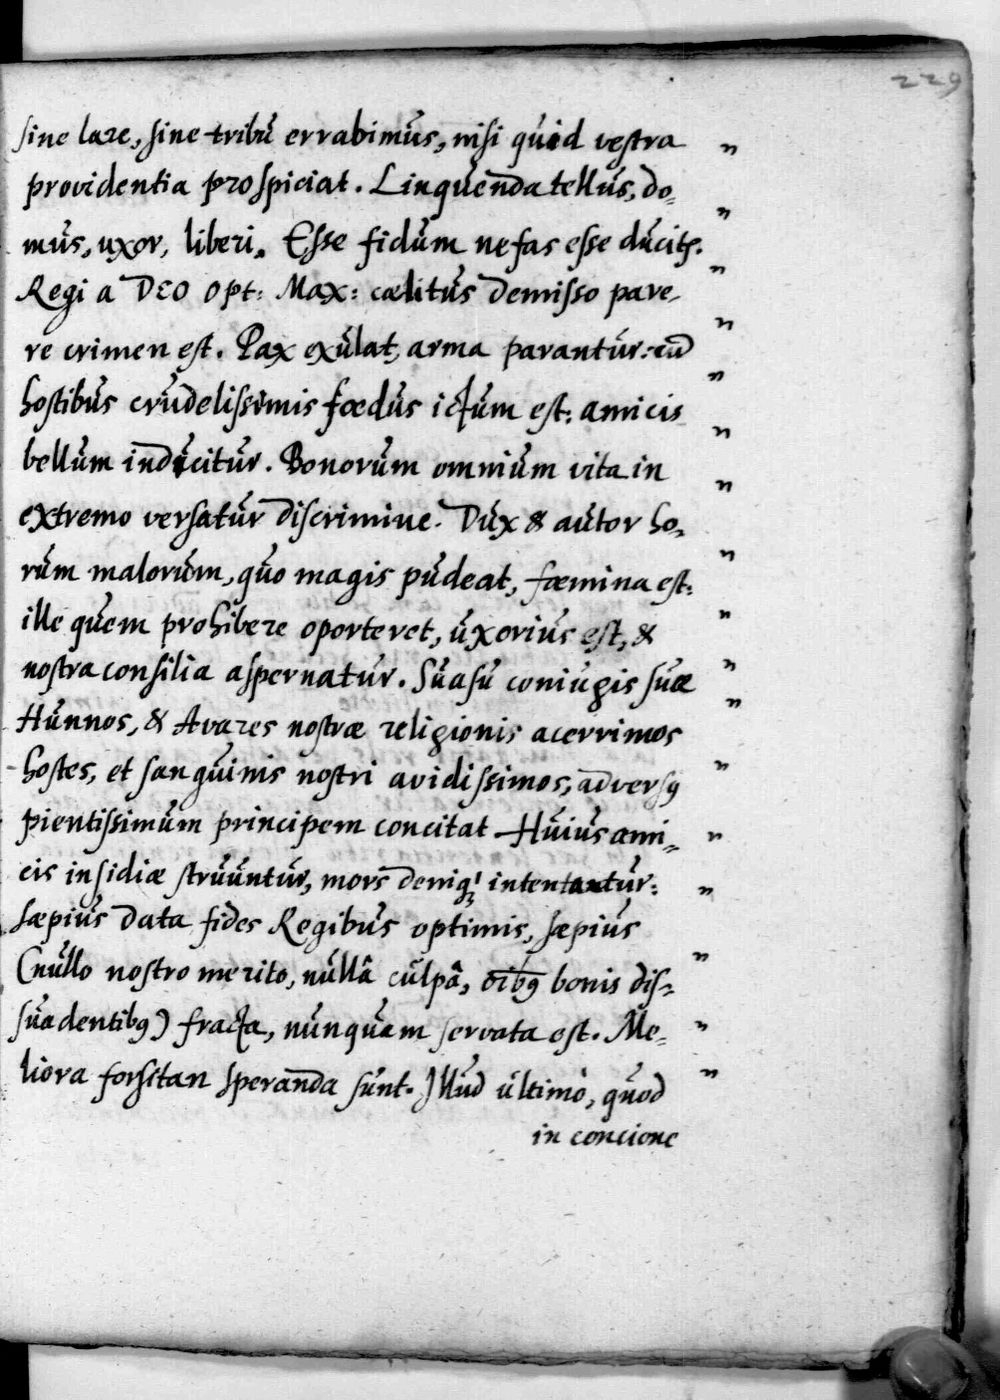 229
sine lare, sine tribu errabimus, nisi quid vestra
providentia prospiciat. Linquenda tellus, do-
mus, uxor, liberi. Esse fidum nefas esse ducitr.
Regi a DEO Opt: Max: cælitus demisso pare-
re crimen est. Pax exulat, arma parantur: cū
hostibus crudelissimis fœdus ictum est: amicis
bellum indicitur. Bonorum omnium vita in
extremo versatur discrimine. Dux & autor ho-
rum malorum, quo magis pudeat, fœmina est:
ille quem prohibere oporteret, uxorius est, &
nostra consilia aspernatur. Suasu coniugis suæ
Hunnos, & Avares nostræ religionis acerrimos
hostes, et sanguinis nostri avidissimos, adversꝰ
pientissimum principem concitat Huius ami-
cis insidiæ struuntur, mors deniqꝫ intentantur:
sæpius data fides Regibus optimis, sæpius
(nullo nostro merito, nullâ culpâ, oībꝰ bonis dis-
suadentibꝰ) fracta, nunquam servata est. Me-
liora forsitan speranda sunt. Illud ultimò, quod
in concione